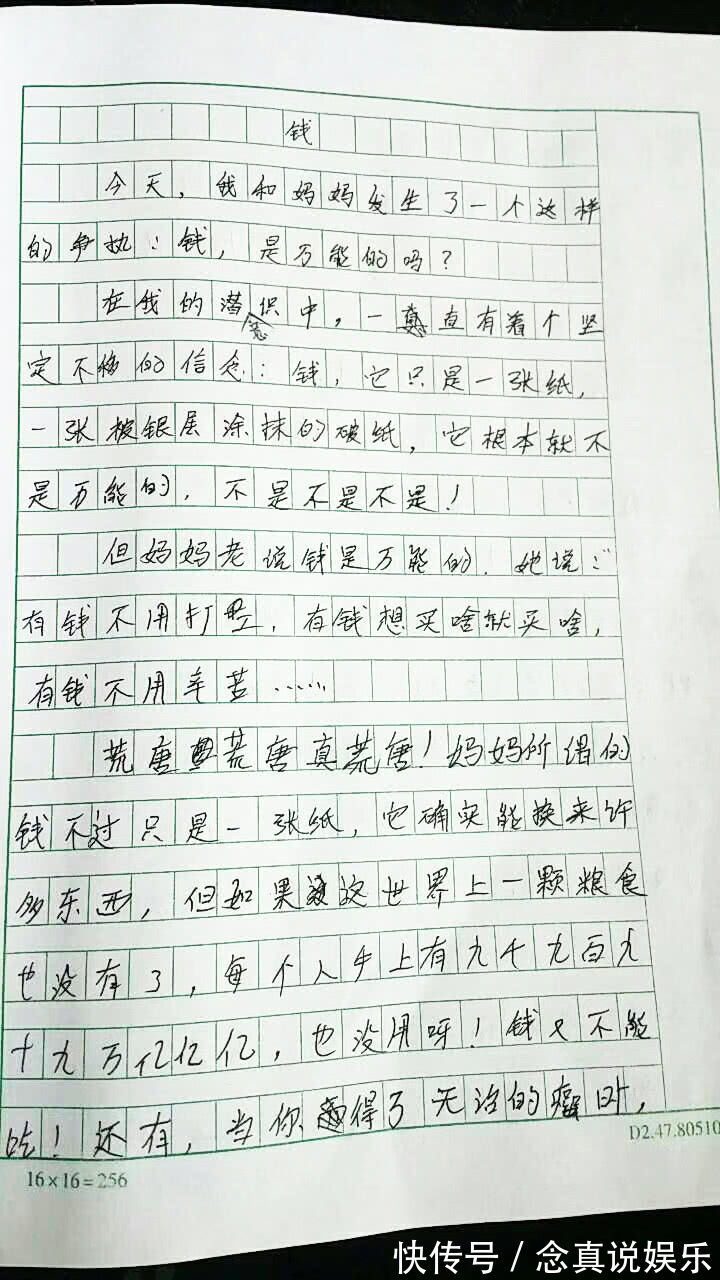 钱
今天，我和妈妈发生了一个这样
的争执：钱，是万能的吗？
在我的潜意识中，一直有着个坚
定不移的信念：钱，它只是一张纸，
一张被银层涂抹的破纸，它根本就不
是万能的，不是不是不是！
但妈妈老说钱是万能的．她说：
有钱不用打工，有钱想买啥就买啥，
有钱不用辛苦……
荒唐荒唐真荒唐！妈妈所谓的
钱不过只是一张纸，它确实能换来许
多东西，但如果这世界上一颗粮食
也没有了，每个人手上有九千九百九
十九万亿亿亿，也没用呀！钱又不能
吃！还有，当你得了无治的癌时，
16×16=256
D2.47.80510
快传号/念真说娱乐